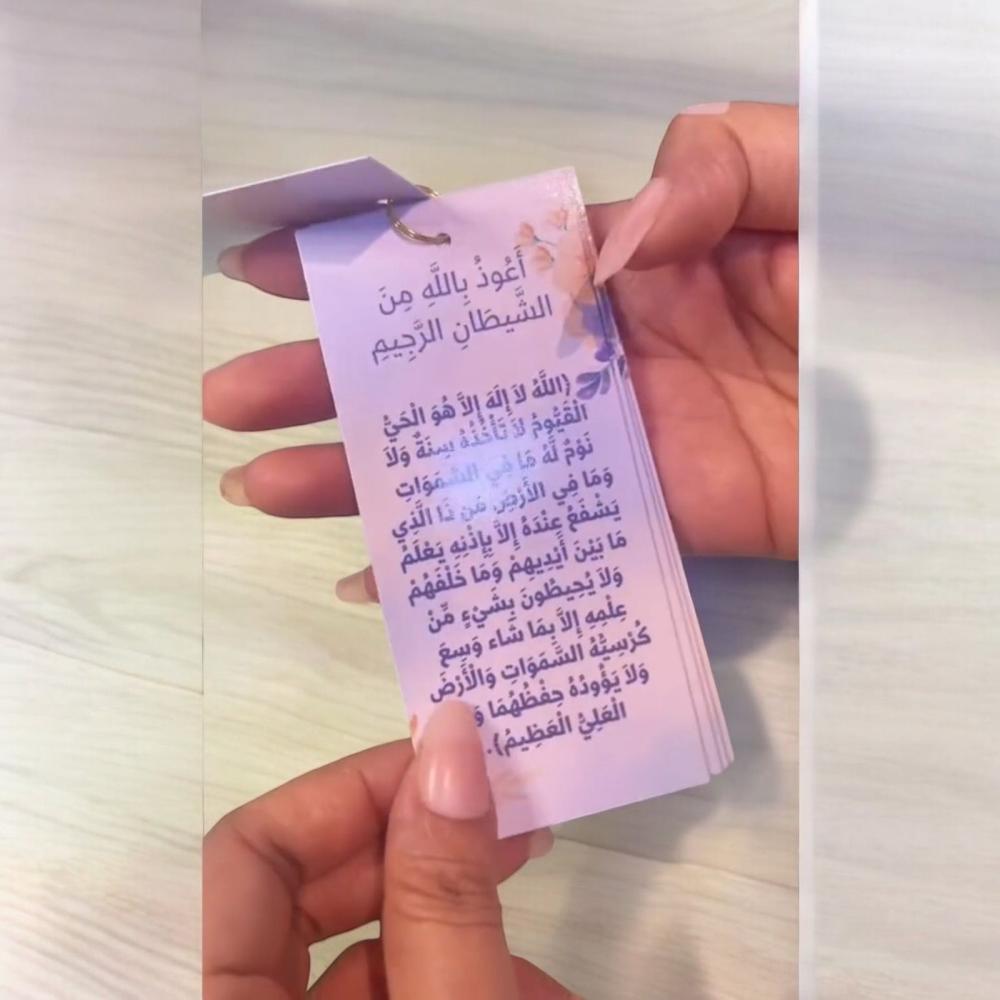 أَعُوذُ بِاللَّهِ مِنَ
الشَّيطَانِ الرَّجِيمِ
(اللَّهُ لاَ إِلَهَ إِلاَّ هُوَ الْحَيُّ
الْقَيُّومُ لاَ تَأْخُذُهُ سِنَةٌ وَلاَ
نَوْمٌ لَهُ مَا فِي السَّمَوَاتِ
وَمَا فِي الأَرْضِ مَن ذَا الَّذِي
يَشْفَعُ عِنْدَهُ إِلاَّ بِإِذْنِهِ يَعْلَمُ
مَا بَيْنَ أَيْدِيهِمْ وَمَا خَلْفَهُمْ
وَلاَ يُحِيطُونَ بِشَيْءٍ مِّنْ
عِلْمِهِ إِلاَّ بِمَا شَاء وَسِعَ
كُرْسِيُّهُ السَّمَوَاتِ وَالْأَرْضَ
وَلاَ يَؤُودُهُ حِفْظُهُمَا
الْعَلِيُّ الْعَظِيمُ).